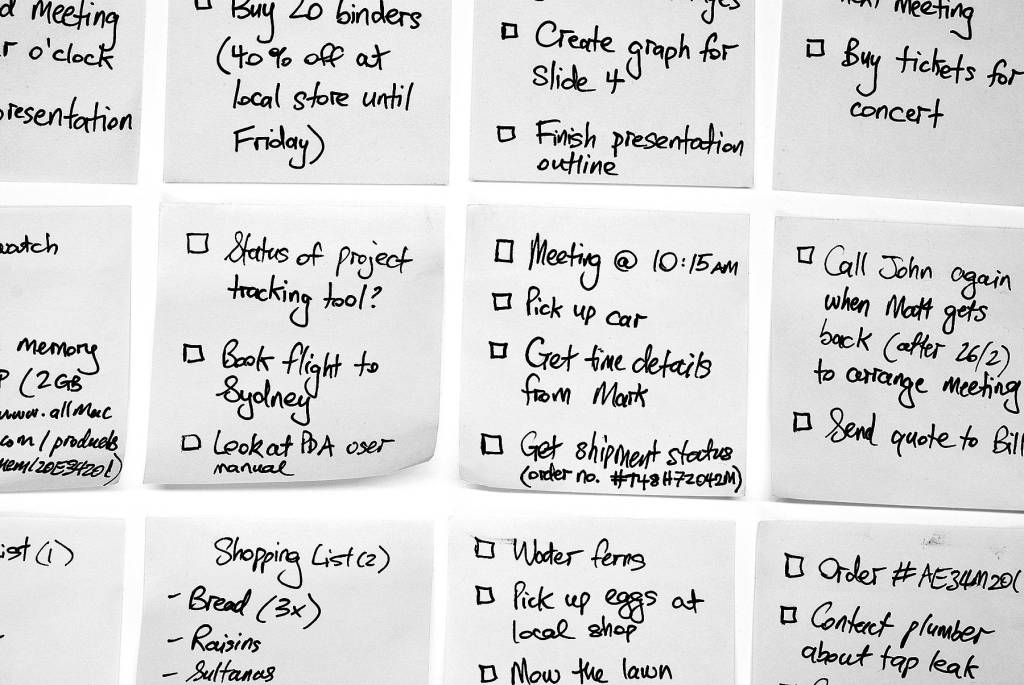 d Meeting
r o'clock
presentation
Buy 20 binders
(40% off at
local store until
Friday)
Create graph for
Slide 4
Finish presentation
outline
Meeting
Buy tickets for
concert
watch
memory
P (2GB
www.allmac
com/products
mem/20E3420L)
Status of project
tracking tool?
Book flight to
Sydney
Look at PDA user
manual
Meeting @ 10:15AM
Pick up car
Get time details
from Mark
Get shipment status
(order no. #T48H72042M)
Call John again
when Matt gets
back (after 26/2)
to arrange meeting
Send quote to Bill
ist (1)
Shopping List (2)
- Bread (3x)
- Raisins
- Sultanas
Water ferns
Pick up eggs at
local shop
Mow the lawn
Order #AE34M20(
Contact plumber
about tap leak